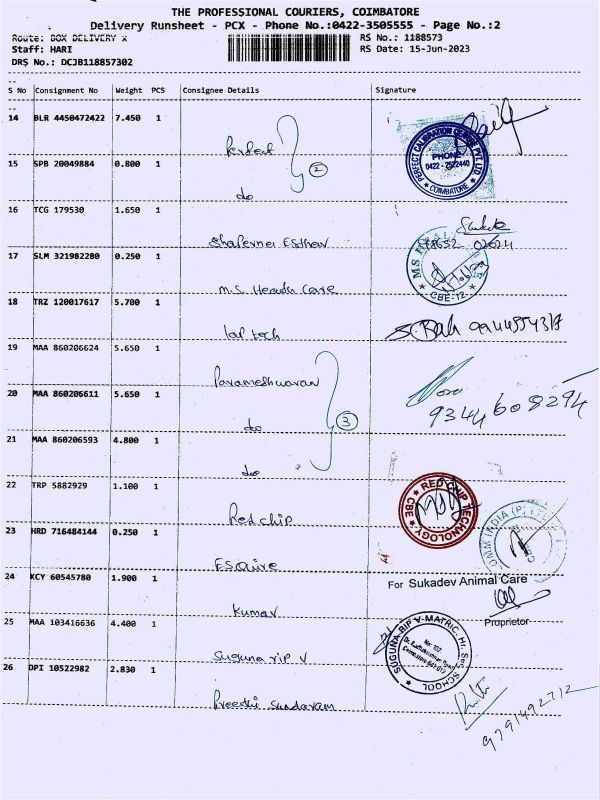 THE PROFESSIONAL COURIERS, COIMBATORE
Delivery Runsheet - PCX - Phone No.:0422-3505555 - Page No.:2
Route: BOX DELIVERY X
RS No.: 1188573
Staff: HARI
RS Date: 15-Jun-2023
DRS No.: DCJB118857302
S No Consignment No Weight PCS Consignee Details Signature
14 BLR 4450472422 7.450 1
Perfect
PERFECT CALIBRATION CENTRE PVT. LTD
PHONE
0422 - 2572440
COIMBATORE
15 SPB 20049884 0.800 1
do
2
16 TCG 179530 1.650 1
Sharevna Esther
17 SLM 321982280 0.250 1
M.S Health Care
CBE-12
18 TRZ 120017617 5.700 1
lap tech
19 MAA 860206624 5.650 1
Parameshwaran
20 MAA 860206611 5.650 1
do
3
9344608294
21 MAA 860206593 4.800 1
do
22 TRP 5882929 1.100 1
Redchip
RED CHIP TECHNOLOGY
CBE
23 HRD 716484144 0.250 1
ESquire
INDIA (P)
24 KCY 60545780 1.900 1
Kumar
For Sukadev Animal Care
Proprietor
25 MAA 103416636 4.400 1
Suguna rip V
SUGUNA RIP V-MATRIC. Hr. Sec. SCHOOL
26 DPI 10522982 2.830 1
Preethi Sundaram
9791492712